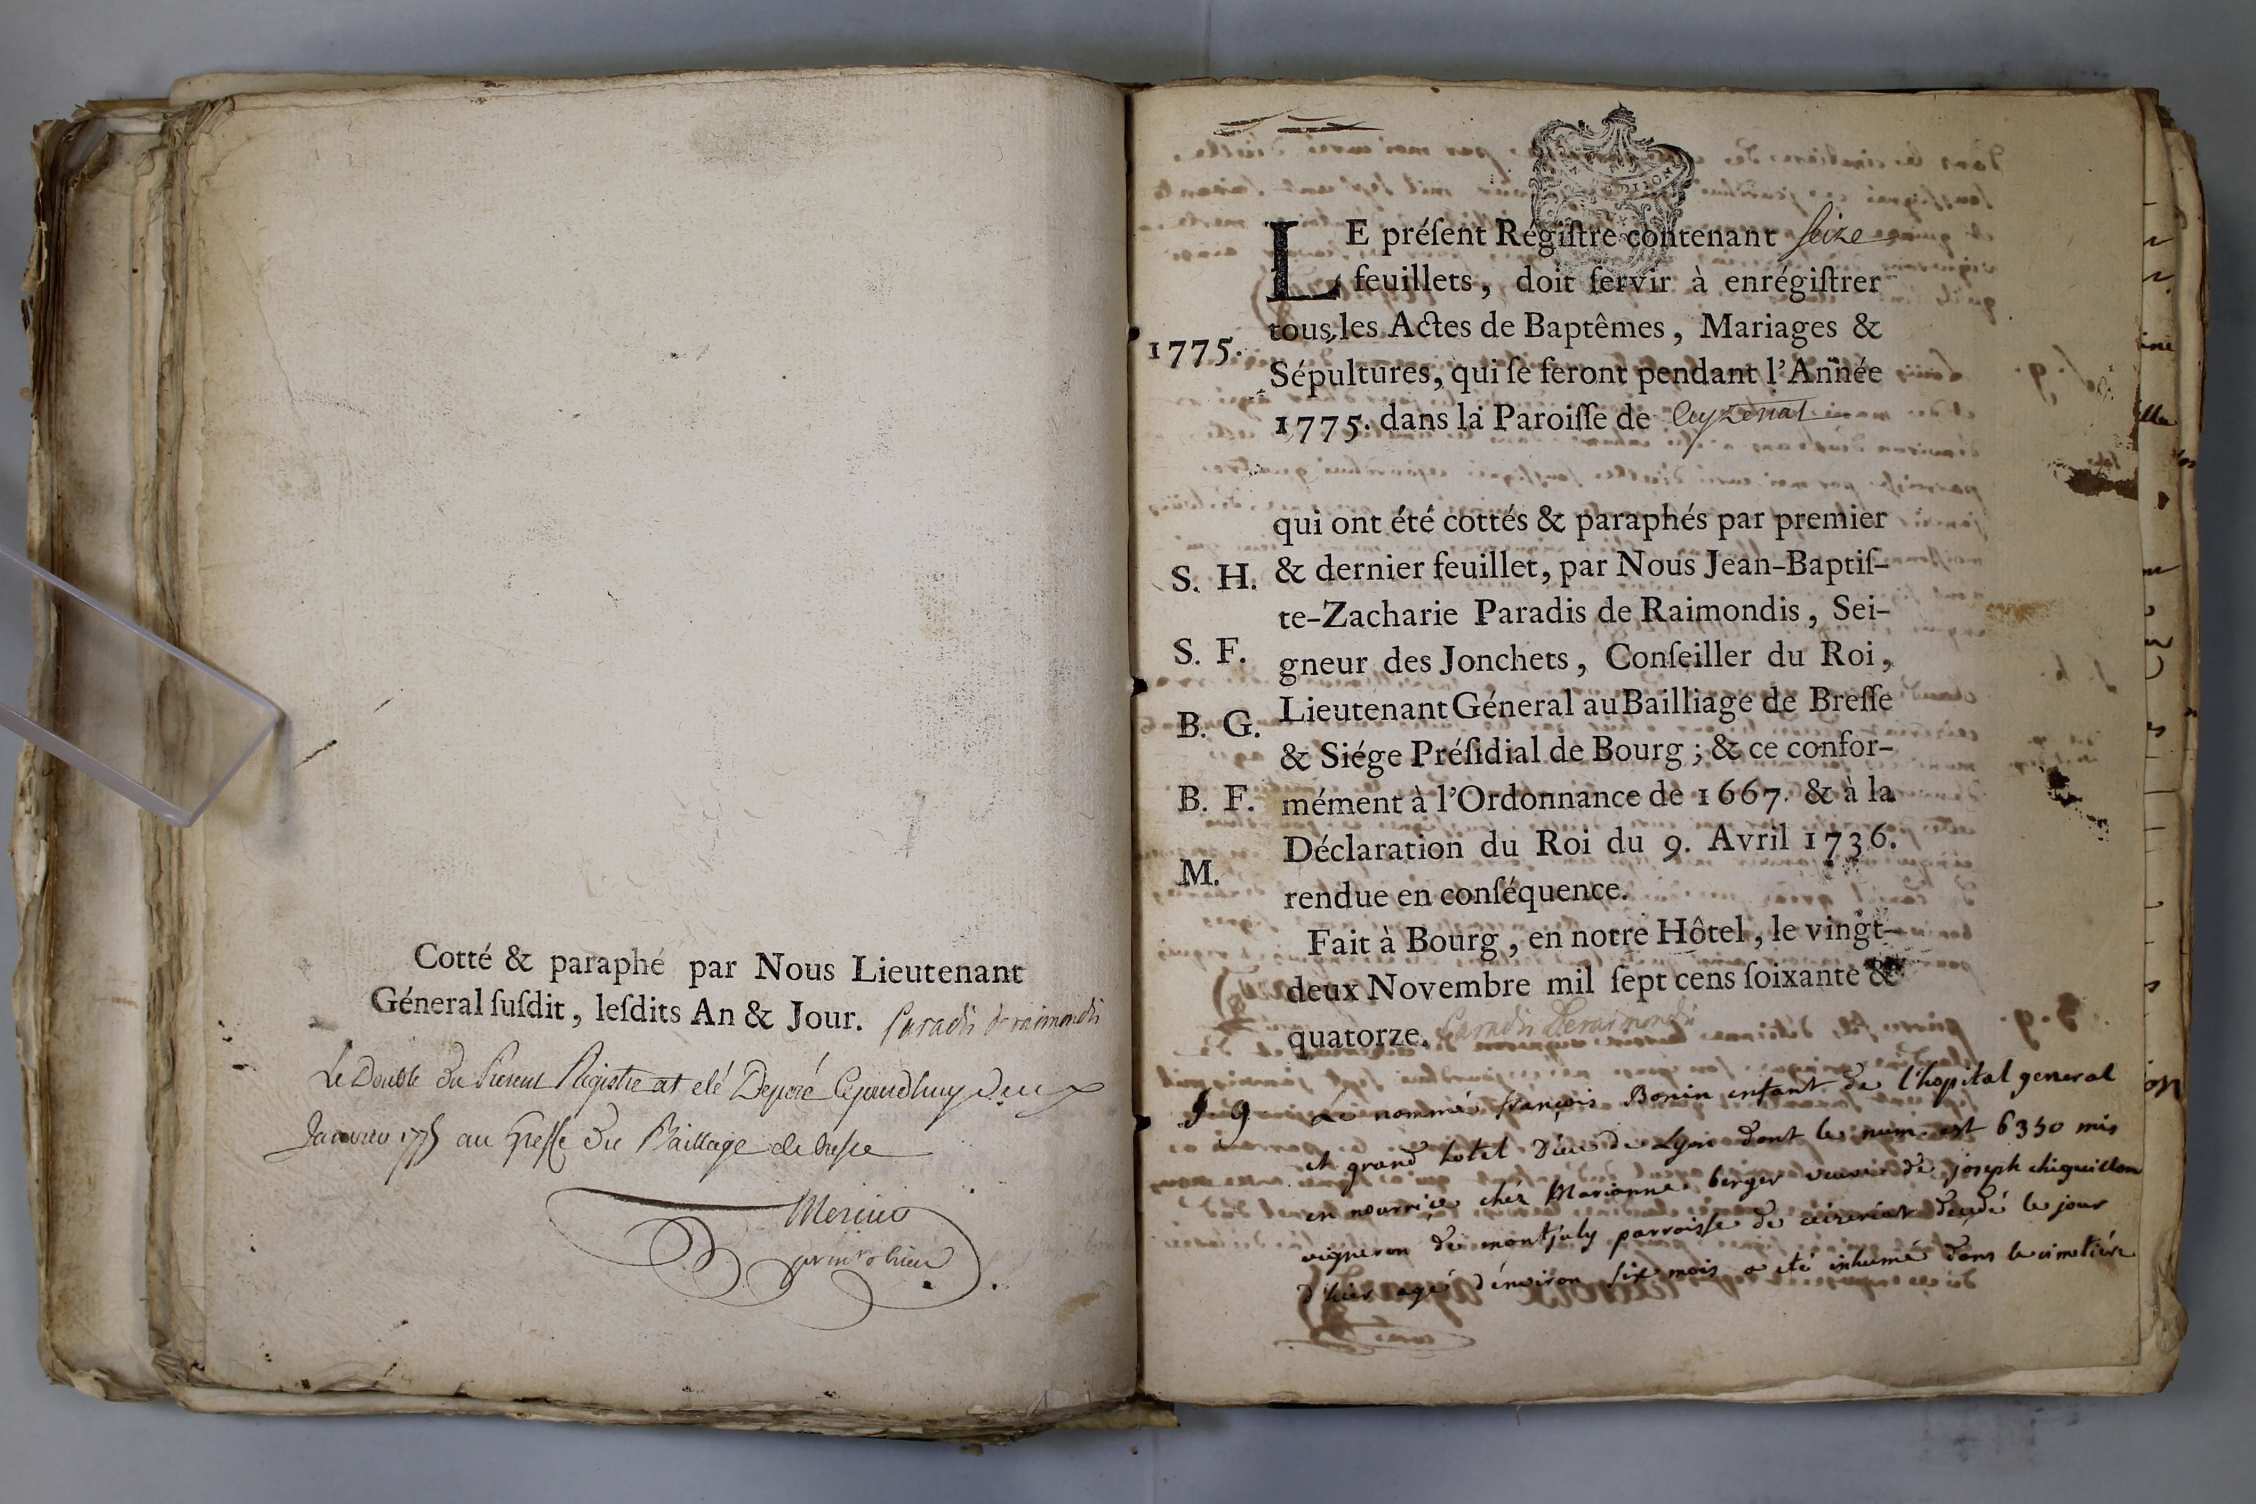 Cotté & paraphé par Nous Lieutenant
Géneral ſuſdit, leſdits An & Jour. Paradis deraimondis
Le Double du Present Registre at eté Deposé Cejourdhuy deux
Janvier 1775 au Greffe du Baillage de bresse
LE préſent Régiſtre contenant Seize
feuillets, doit ſervir à enrégiſtrer
tous les Actes de Baptêmes, Mariages &
1775.
Sépultures, qui ſe feront pendant l'Année
1775. dans la Paroiſſe de Ceyzeriat
qui ont été cottés & paraphés par premier
S. H.
& dernier feuillet, par Nous Jean-Baptiſ-
te-Zacharie Paradis de Raimondis, Sei-
S. F.
gneur des Jonchets, Conſeiller du Roi,
Lieutenant Géneral au Bailliage de Breſſe
B. G.
& Siége Préſidial de Bourg; & ce confor-
B. F.
mément à l'Ordonnance de 1667. & à la
Déclaration du Roi du 9. Avril 1736.
M.
rendue en conſéquence.
Fait à Bourg, en notre Hôtel, le vingt-
deux Novembre mil ſept cens ſoixante &
quatorze. Paradis deraimondis
S g Le nommé françois Bonin enfant de l'hopital general
et grand hotel Dieu de Lyon dont le num. est 6350 mis
en nourrice chéz Marianne berger veuve de joseph chiquillon
vigneron de montjuly parroisse de ceizeriat decédé le jour
d'hier agé d'environ six mois a eté inhumé dans le cimetiére